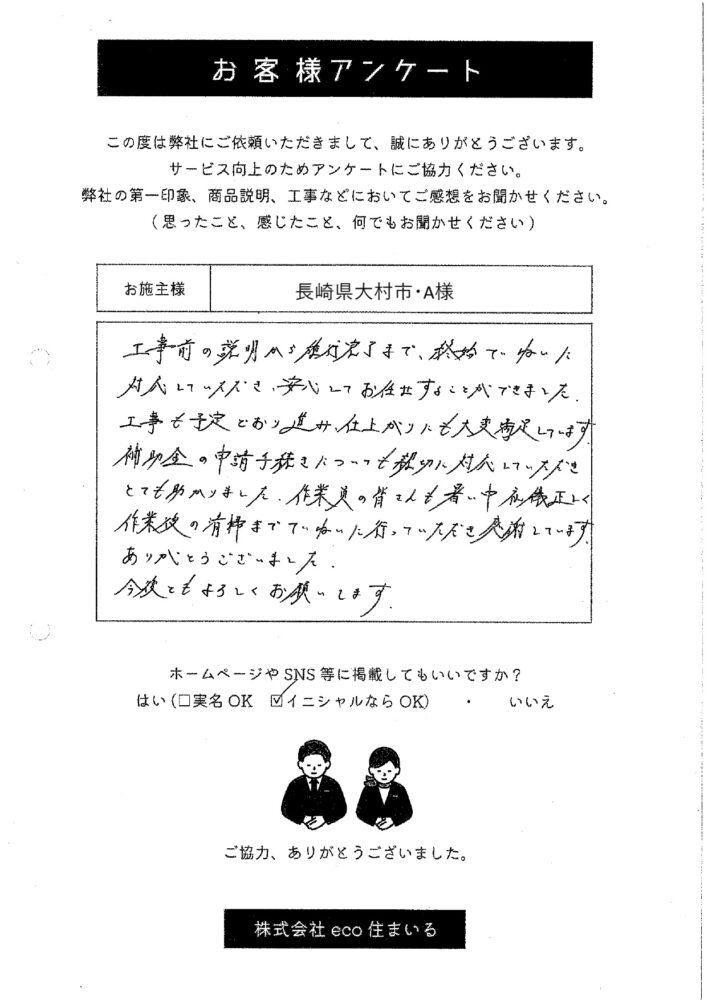 お客様アンケート
この度は弊社にご依頼いただきまして、誠にありがとうございます。
サービス向上のためアンケートにご協力ください。
弊社の第一印象、商品説明、工事などにおいてご感想をお聞かせください。
(思ったこと、感じたこと、何でもお聞かせください)
お施主様
長崎県大村市・A様
工事前の説明から施行完了まで、終始ていねいに
対応していただき、安心してお任せすることができました。
工事も予定どおり進み、仕上がりにも大変満足しています。
補助金の申請手続きについても親切に対応していただき
とても助かりました。作業員の皆さんも暑い中礼儀正しく
作業後の清掃までていねいに行っていただき感謝しています。
ありがとうございました。
今後ともよろしくお願いします。
ホームページやSNS等に掲載してもいいですか?
はい(□実名OK ☑イニシャルならOK) ・ いいえ
ご協力、ありがとうございました。
株式会社eco住まいる